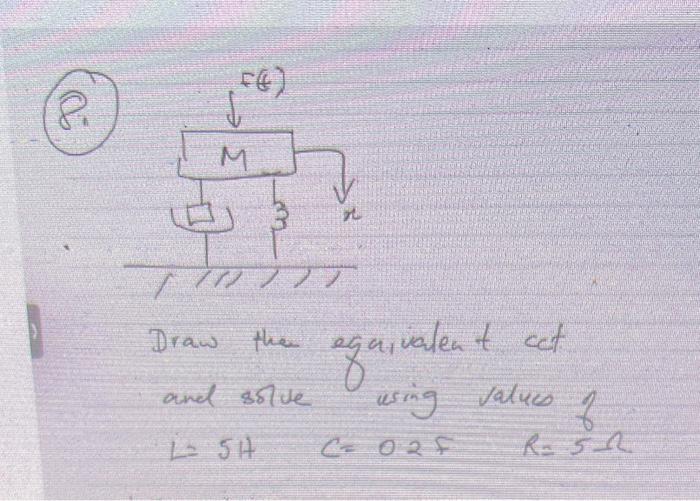 8.
F(t)
M
x
Draw the equivalent cct
and solve using values of
L= 5H C= 02F R= 5Ω